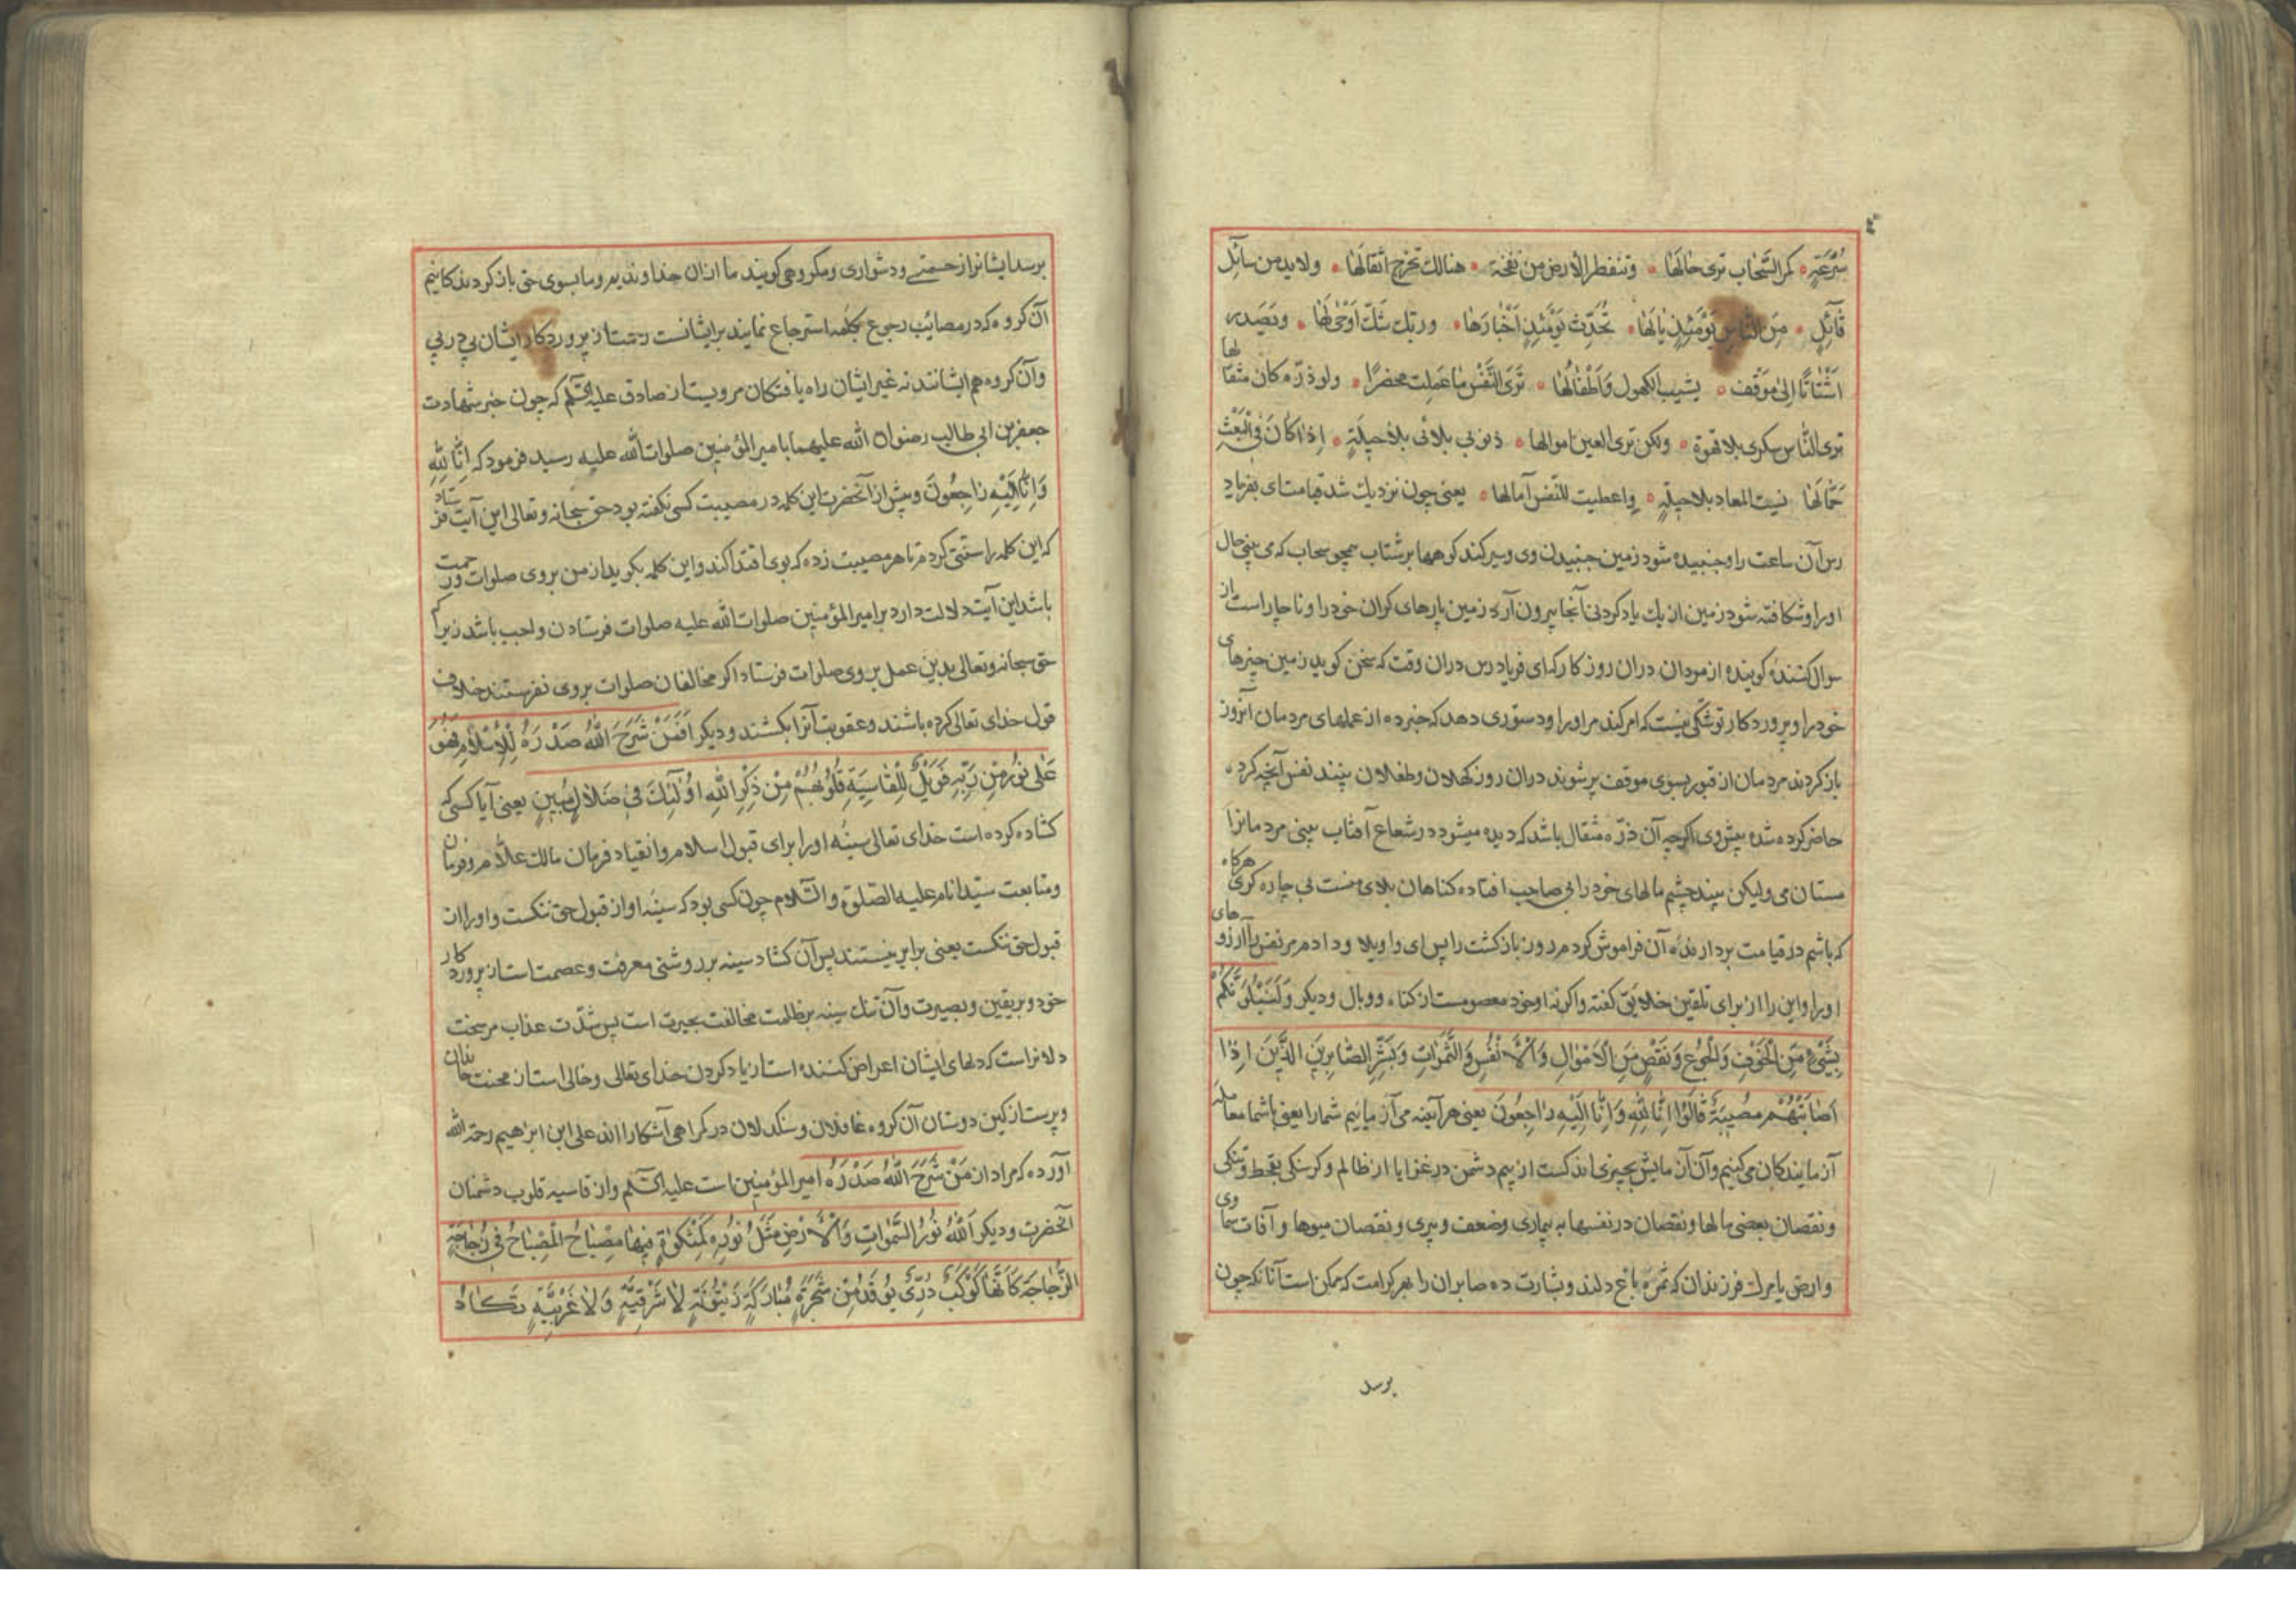 سُرْعَةٍ کمر السَّحاب تری حالَها وتنفطر الأرض من نفخة هنالك تخرج اثقالَها ولابد من سآئِل
قآئِلٍ مِنَ النّاسِ يَوْمَئِذٍ مالَها تُحَدِّثُ يَوْمَئِذٍ اَخْبارَها وربّك شكّ اَوْحٰى لَها ويَصدر
اَشْتاتًا اِلىٰ مَوْقف يشيب الكهول وَاَطْفالُها تَرَى النَّفْس ما عَمِلت محضرًا ولو ذرّه كان مثقالها
تری النّاس سکری بلا قهوة ولكن تری العين اموالها ذنوبی بلائی بلا حيلَةٍ اِذا كانَ فِی الْبَعْثِ
حَمّالَها نسيت المعاد بلا حيلَةٍ واعطيت للنّفس آمالها یعنی چون نزدیك شد قیامت ای بفریاد
رس آن ساعت را وجنبیده شود زمین جنبیدن وی وسیر کند کوهها بر شتاب همچو سحاب که می بینی حال
اورا وشکافته شود زمین از یك یاد کردنی آنجا بیرون آرد زمین بارهای کران خود را وناچار است از
سوال کننده کوینده از مردان دران روز کار که ای فریاد رس دران وقت که سخن کوید زمین خبرهای
خود را وپروردکار تو شکّی نیست که امر کند مر اورا ودستوری دهد که خبر ده از عملهای مردمان آنروز
باز کردند مردمان از قبور بسوی موقف پیر شوند دران روز کهلان وطفلان بیند نفس آنچه کرده
حاضر کرده شده پیش وی اکرچه آن ذرّه مثقال باشد که دیده میشود در شعاع آفتاب بینی مردمانرا
مستان می ولیکن بیند چشم مالهای خود را بی صاحب افتاده کناهان بلای منست بی چاره کری هرکاه
که باشم در قیامت بردارنده آن فراموش کردم روز بازکشت را پس ای واویلا ودادم مر نفس را آرزوهای
اورا واین را از برای تلقین خلایق کفته واکرنه او خود معصومست از کناه ووبال ودیکر وَلَنَبْلُوَنَّكُمْ
بِشَیْءٍ مِنَ الْخَوْفِ وَالْجُوعِ وَنَقْصٍ مِنَ الْاَمْوالِ وَالْأَنْفُسِ وَالثَّمَراتِ وَبَشِّرِ الصّابِرِينَ الَّذِينَ اِذا
اَصابَتْهُمْ مُصِيبَةٌ قالُوا اِنّا لِلّٰهِ وَاِنّا اِلَيْهِ راجِعُونَ یعنی هرآینه می آزماییم شمارا یعنی با شما معامله
آزمایندکان می کنیم وآن آزمایش بچیزی اندکست از بیم دشمن در غزا یا از ظالم وکرسنکی بقحط وتنکی
ونقصان بعضی مالها ونقصان در نفسها به بیماری وضعف وپیری ونقصان میوها وآفات سماوی
وارضی یا مرك فرزندان که ثمره باغ دلند وبشارت ده صابران را بهر کرامت که ممکن است آنانکه چون
برسد
برسد ایشانرا از حسمتی ودشواری ومکروهی کویند ما ازان خداوندیم وما بسوی حق بازکردندکانیم
آن کروه که در مصائب رجوع بکلمه استرجاع نمایند بر ایشانست رحمت از پروردکار ایشان پی در پی
وآن کروه هم ایشانند نه غیر ایشان راه یافتکان مرویست از صادق علیه السّلم که چون خبر شهادت
جعفر بن ابی طالب رضوان الله علیهما با میر المؤمنین صلوات الله علیه رسید فرمود که اِنّا لِلّٰهِ
وَاِنّا اِلَيْهِ راجِعُونَ وپیش از آنحضرت این کلمه در مصیبت کسی نکفته بود حق سبحانه وتعالی این آیت فرستاد
که این کلمه را سنتی کردم تا هر مصیبت زده که بوی اقتدا کند واین کلمه بکوید از من بر وی صلوات ورحمت
باشد این آیت دلالت دارد بر امیر المؤمنین صلوات الله علیه صلوات فرستادن واجب باشد زیرا که
حق سبحانه وتعالی بدین عمل بر وی صلوات فرستاد اکر مخالفان صلوات بر وی نفرستند خلاف
قول خدای تعالی کرده باشند وعقوبت آنرا بکشند ودیکر اَفَمَنْ شَرَحَ اللّٰهُ صَدْرَهُ لِلْاِسْلامِ فَهُوَ
عَلٰى نُورٍ مِنْ رَبِّهِ فَوَيْلٌ لِلْقاسِيَةِ قُلُوبُهُمْ مِنْ ذِكْرِ اللّٰهِ اُولٰئِكَ فِی ضَلالٍ مُبِينٍ یعنی آیا کسی که
کشاده کرده است خدای تعالی سینه اورا برای قبول اسلام وانقیاد فرمان مالك علّام وفرمان
ومتابعت سیّد انام علیه الصّلوة والسّلام چون کسی بود که سینه او از قبول حق تنکست واورا از
قبول حق تنکست یعنی برابر نیستند پس آن کشاد سینه بر روشنی معرفت وعصمت است از پروردکار
خود وبر یقین وبصیرت وآن تنك سینه بر ظلمت مخالفت بحیرت است پس شدّت عذاب مر سخت
دلانراست که دلهای ایشان اعراض کننده است از یاد کردن خدای تعالی وخالی است از محبت خانان
وپرست از کین دوستان آن کروه غافلان وسنکدلان در کمراهی آشکارا اند علی ابن ابرهیم رحمه الله
آورده که مراد از مَنْ شَرَحَ اللّٰهُ صَدْرَهُ امیر المؤمنین است علیه السّلم واز قاسیه قلوب دشمنان
آنحضرت ودیکر اَللّٰهُ نُورُ السَّمٰواتِ وَالْأَرْضِ مَثَلُ نُورِهِ كَمِشْكٰوةٍ فِيها مِصْباحٌ الْمِصْباحُ فِی زُجاجَةٍ
الزُّجاجَةُ كَاَنَّها كَوْكَبٌ دُرِّیٌّ يُوقَدُ مِنْ شَجَرَةٍ مُبارَكَةٍ زَيْتُونَةٍ لا شَرْقِيَّةٍ وَلا غَرْبِيَّةٍ يَكادُ